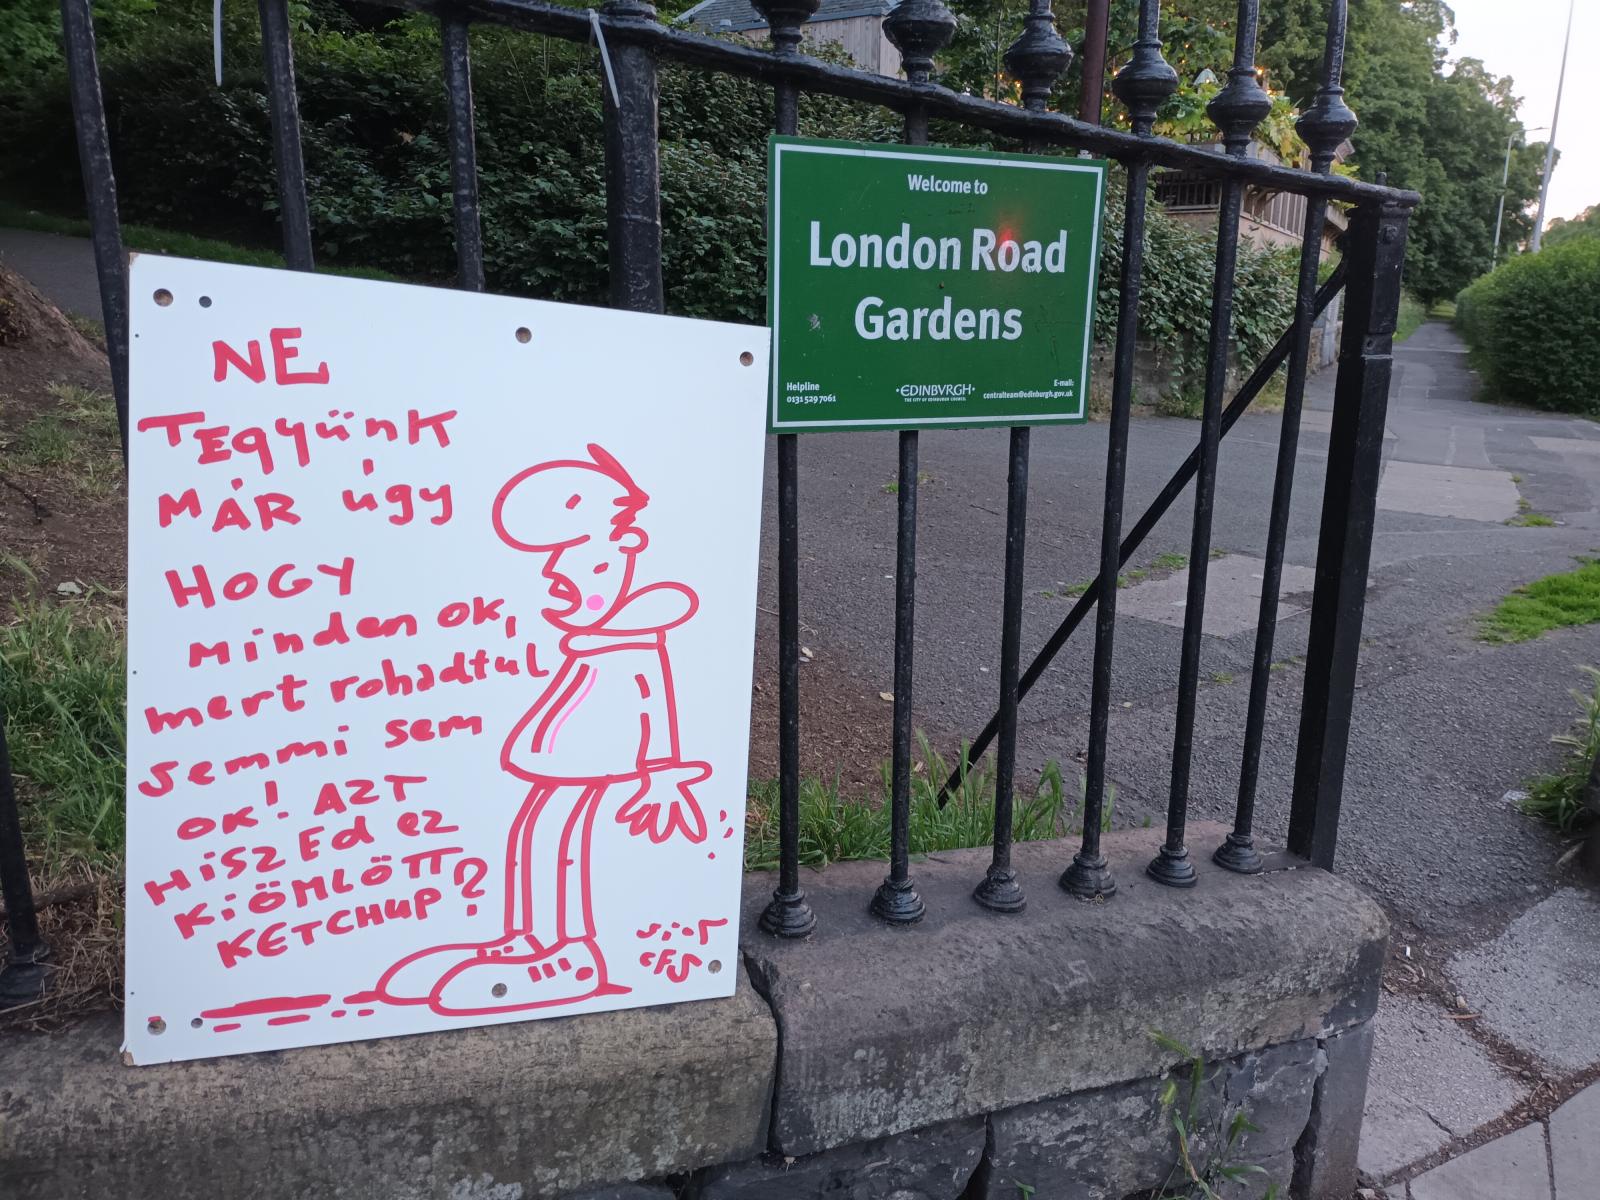 NE
TEgyünk
MÁR úgy
HOGY
minden ok,
mert rohadtul
semmi sem
ok! AZT
HiSZEd ez
KiÖMLÖTT
KETCHUP?
Welcome to
London Road
Gardens
Helpline
0131 529 7061
·EDINBVRGH·
THE CITY OF EDINBURGH COUNCIL
E-mail:
centralteam@edinburgh.gov.uk